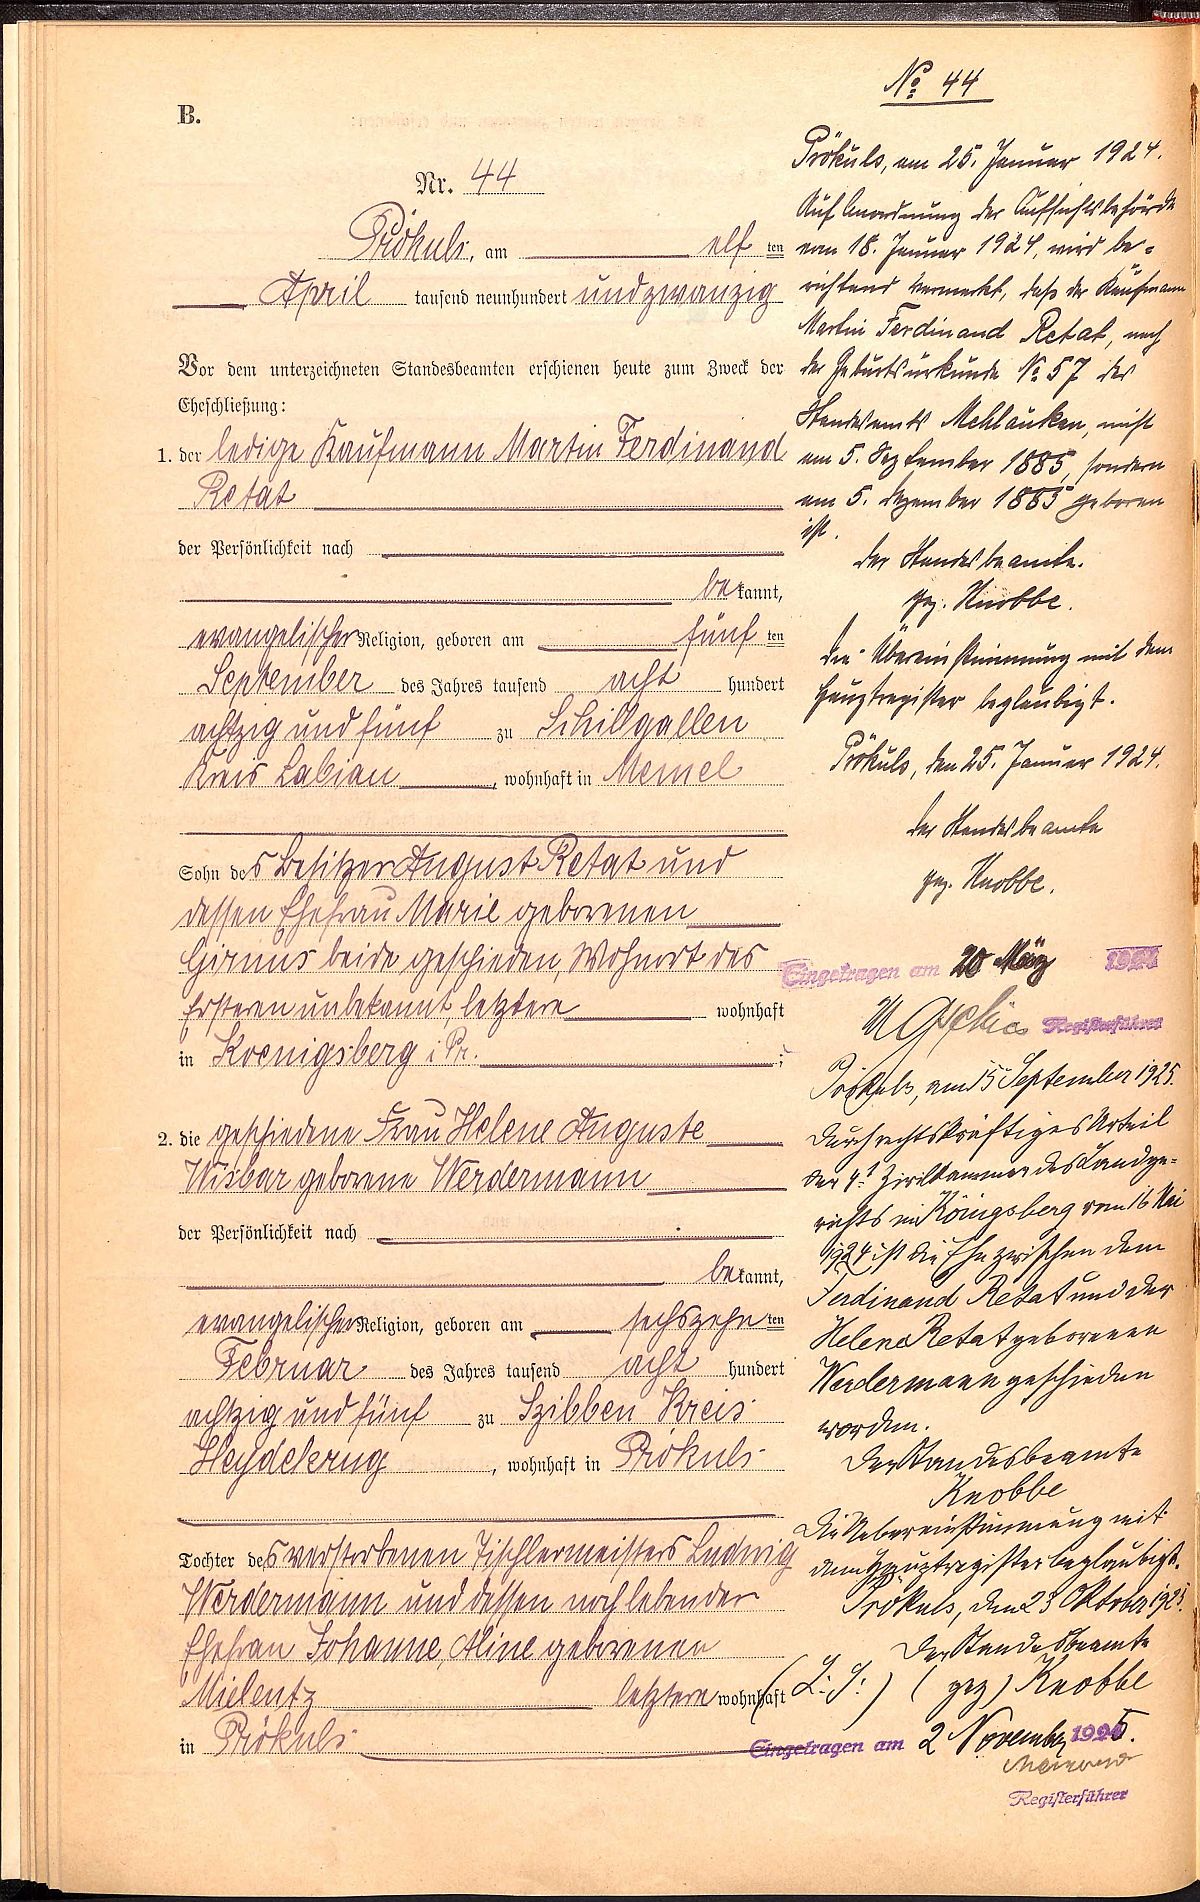 B.
Nr. 44
Prökuls, am elf ten
April tausend neunhundert und zwanzig
Vor dem unterzeichneten Standesbeamten erschienen heute zum Zweck der
Eheschließung:
1. der ledige Kaufmann Martin Ferdinand
Retat
der Persönlichkeit nach
be kannt,
evangelischer Religion, geboren am fünf ten
September des Jahres tausend acht hundert
achtzig und fünf zu Schillgallen
Kreis Labiau, wohnhaft in Memel
Sohn des Besitzer August Retat und
dessen Ehefrau Marie geborenen
Girnus beide geschieden, Wohnort des
Ersteren unbekannt, letztere wohnhaft
in Koenigsberg i. Pr. ;
2. die geschiedene Frau Helene Auguste
Wisbar geborene Werdermann
der Persönlichkeit nach
be kannt,
evangelischer Religion, geboren am sechszehn ten
Februar des Jahres tausend acht hundert
achtzig und fünf zu Szibben Kreis
Heydekrug, wohnhaft in Prökuls
Tochter des verstorbenen Tischlermeisters Ludwig
Werdermann und dessen noch lebenden
Ehefrau Johanne, Aline geborenen
Mielentz letztere wohnhaft
in Prökuls
No 44
Prökuls, am 25. Januar 1924.
Auf Anordnung der Aufsichtsbehörde
vom 18. Januar 1924, wird be-
richtend vermerkt, daß der Kaufmann
Martin Ferdinand Retat, nach
der Geburtsurkunde No 57 des
Standesamts Mehlauken, nicht
am 5. September 1885, sondern
am 5. Dezember 1885 geboren
ist.
Der Standesbeamte.
gez. Knobbe.
Die Übereinstimmung mit dem
Hauptregister beglaubigt.
Prökuls, den 25. Januar 1924.
Der Standesbeamte
gez. Knobbe.
Eingetragen am 20 März 1924
Registerführer
Prökuls, am 15 September 1925.
Durch rechtskräftiges Urteil
der 4t Zivilkammer des Landge-
richts in Königsberg vom 16 Mai
1924 ist die Ehe zwischen dem
Ferdinand Retat und der
Helene Retat geborenen
Werdermann geschieden
worden.
Der Standesbeamte
Knobbe
Die Uebereinstimmung mit
dem Hauptregister beglaubigt.
Prökuls, den 23 Oktober 1925.
Der Standesbeamte
(L. S.) (gez) Knobbe
Eingetragen am 2 November 1925.
Registerführer